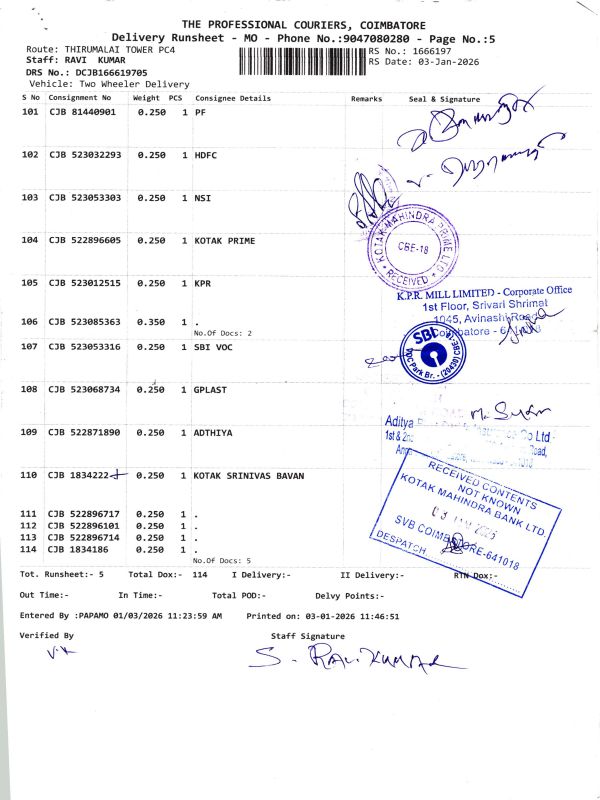 THE PROFESSIONAL COURIERS, COIMBATORE
Delivery Runsheet - MO - Phone No.:9047080280 - Page No.:5
Route: THIRUMALAI TOWER PC4
RS No.: 1666197
Staff: RAVI KUMAR
RS Date: 03-Jan-2026
DRS No.: DCJB166619705
Vehicle: Two Wheeler Delivery
S No Consignment No Weight PCS Consignee Details Remarks Seal & Signature
101 CJB 81440901 0.250 1 PF
102 CJB 523032293 0.250 1 HDFC
103 CJB 523053303 0.250 1 NSI
104 CJB 522896605 0.250 1 KOTAK PRIME
KOTAK MAHINDRA PRIME LTD
CBE-18
RECEIVED
105 CJB 523012515 0.250 1 KPR
K.P.R. MILL LIMITED - Corporate Office
1st Floor, Srivari Shrimat
1045, Avinashi
106 CJB 523085363 0.350 1 .
No.Of Docs: 2
107 CJB 523053316 0.250 1 SBI VOC
SBI
VOC Park Br. - (20430) CBE
108 CJB 523068734 0.250 1 GPLAST
109 CJB 522871890 0.250 1 ADTHIYA
Aditya
Co Ltd
1st &
Road,
110 CJB 1834222 0.250 1 KOTAK SRINIVAS BAVAN
RECEIVED CONTENTS
NOT KNOWN
KOTAK MAHINDRA BANK LTD.
SVB COIMBATORE-641018
DESPATCH
111 CJB 522896717 0.250 1 .
112 CJB 522896101 0.250 1 .
113 CJB 522896714 0.250 1 .
114 CJB 1834186 0.250 1 .
No.Of Docs: 5
Tot. Runsheet:- 5 Total Dox:- 114 I Delivery:- II Delivery:- RTN Dox:-
Out Time:- In Time:- Total POD:- Delvy Points:-
Entered By :PAPAMO 01/03/2026 11:23:59 AM Printed on: 03-01-2026 11:46:51
Verified By Staff Signature
S. RAVI KUMAR